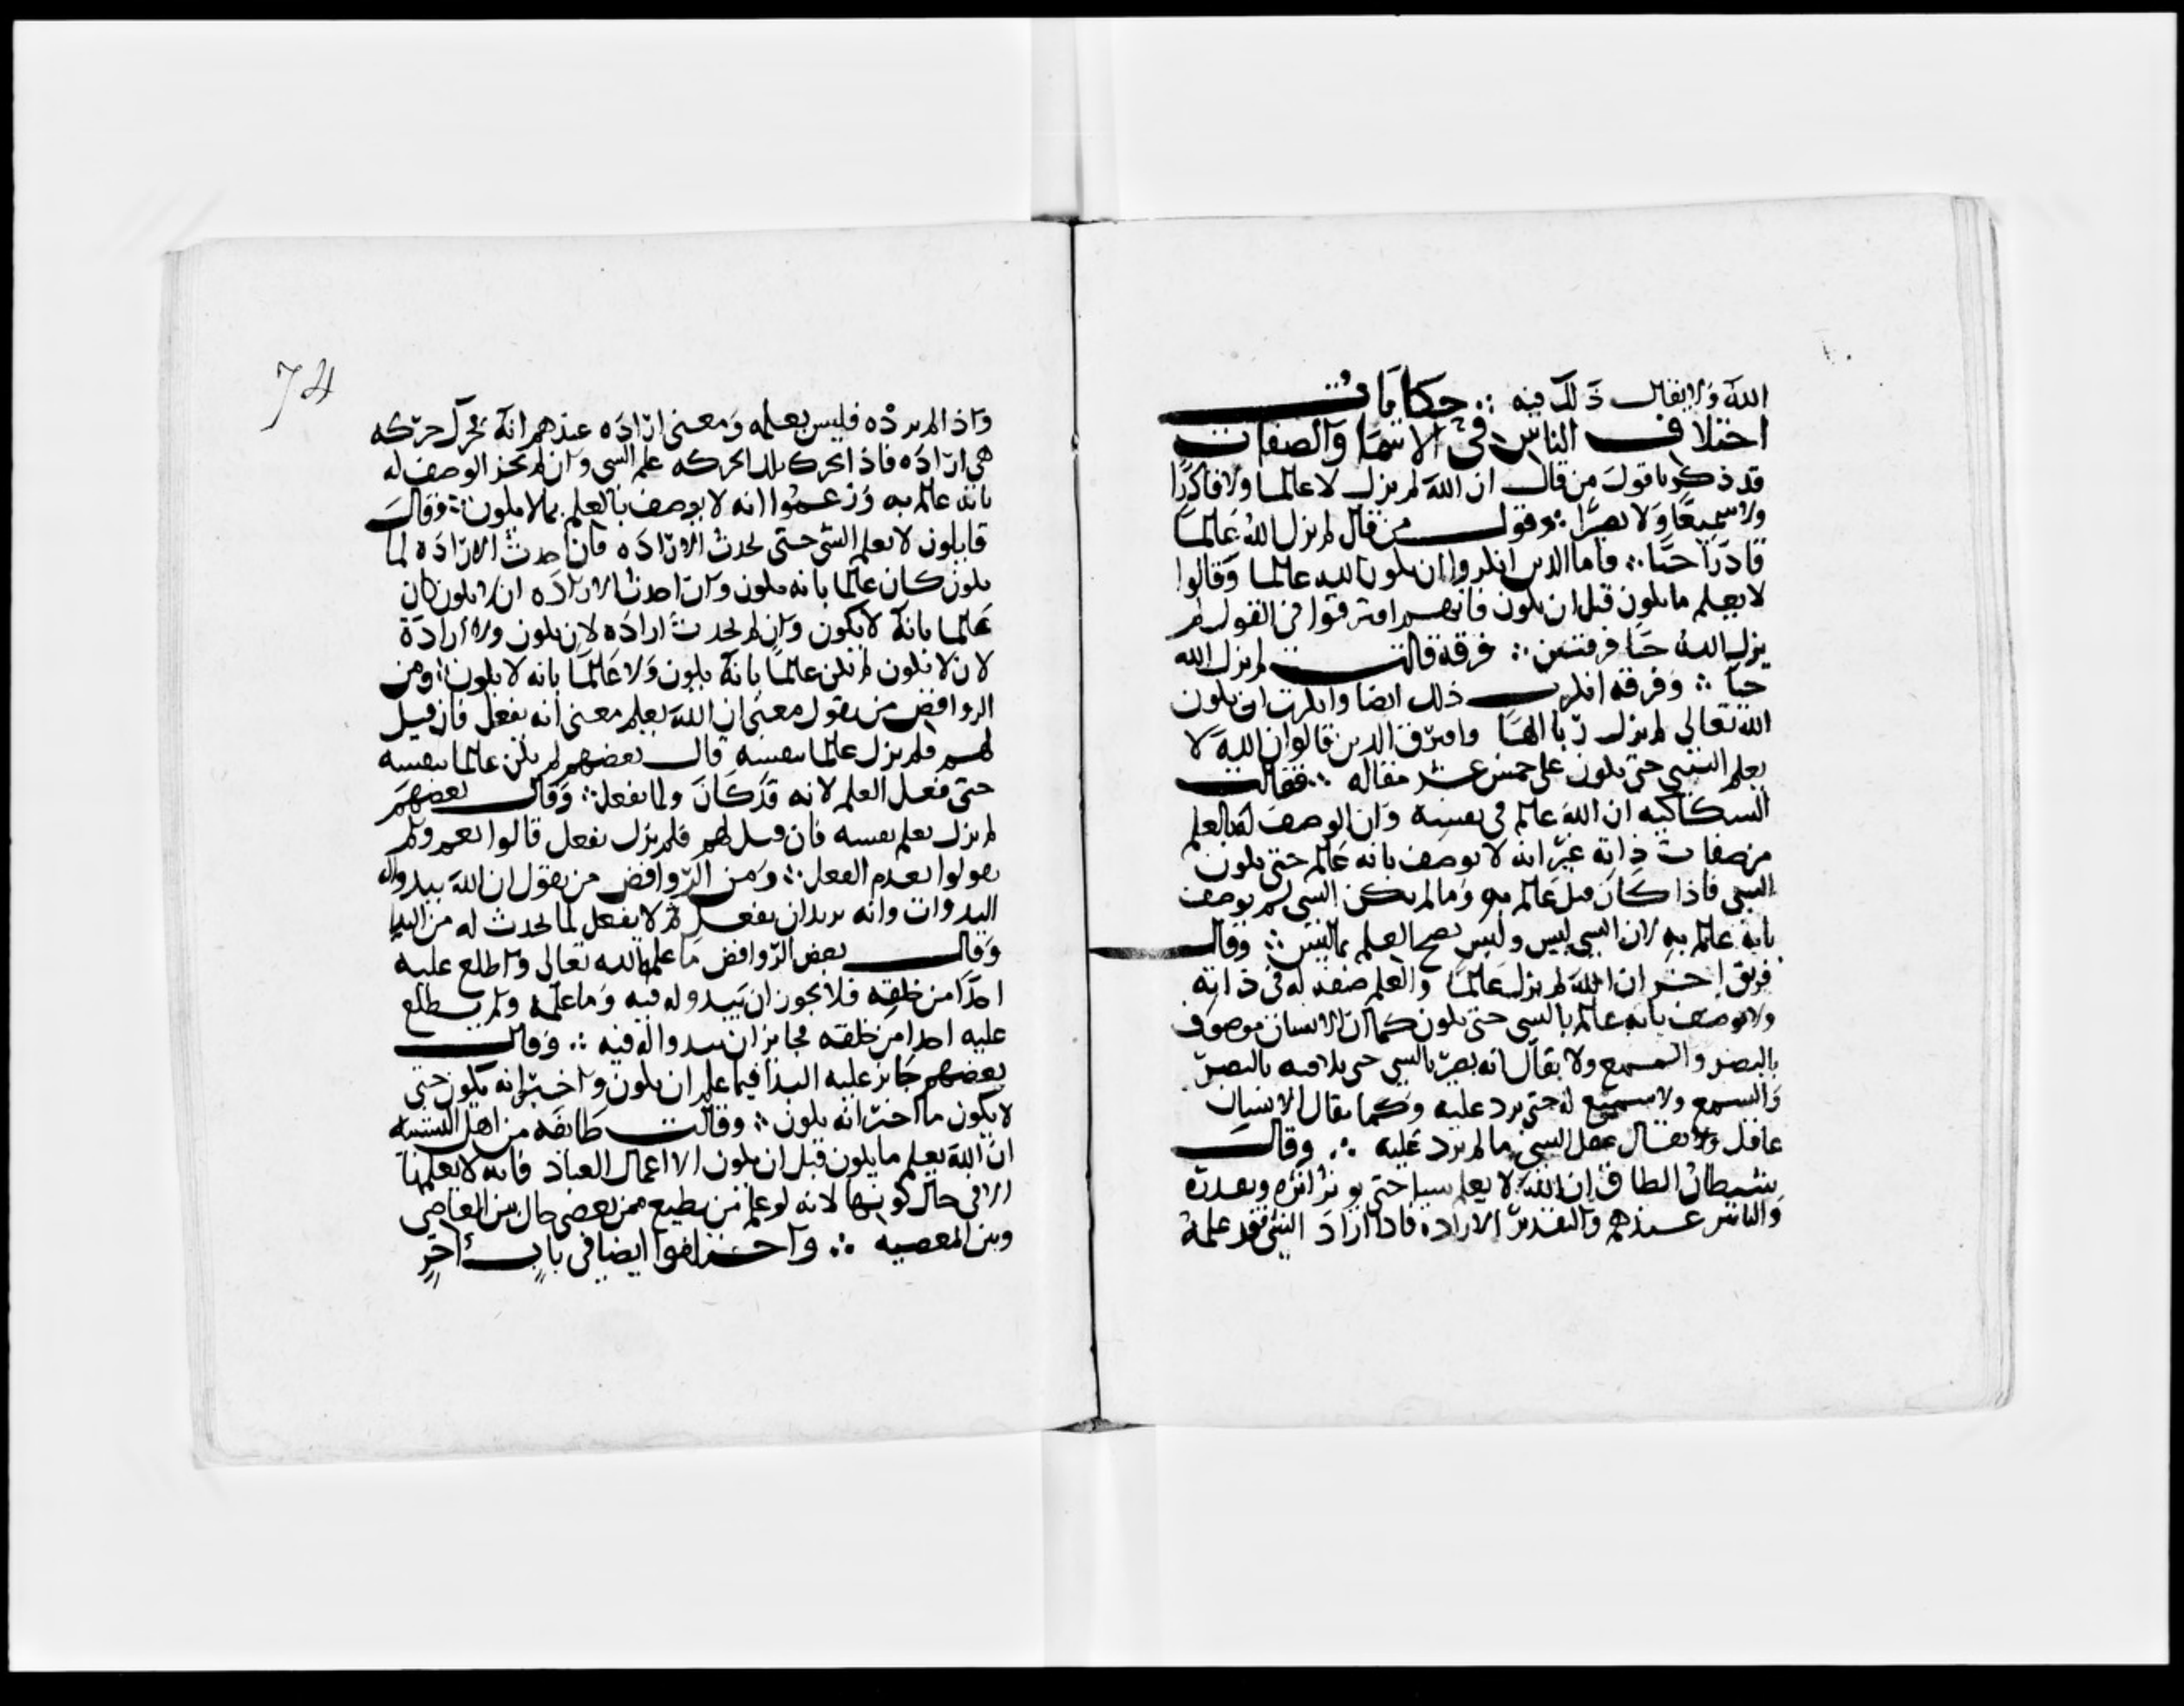 الله ولا يقال ذلك فيه ∴ حكايات
اختلاف الناس في الاسما والصفات
قد ذكرنا قول من قال ان الله لم يزل لا عالما ولا قادرا
ولا سميعا ولا بصيرا ∴ وقول من قال لم يزل الله عالما
قادرا حيا ∴ فاما الذين انكروا ان يكون الله عالما وقالوا
لا يعلم ما يكون قبل ان يكون فانهم افترقوا في القول لم
يزل الله حيا فرقتين ∴ فرقة قالت لم يزل الله
حيا ∴ وفرقة انكرت ذلك ايضا وانكرت ان يكون
الله تعالى لم يزل ربا الها وافترق الذين قالوا ان الله لا
يعلم الشي حتى يكون على خمس عشر مقاله ∴ فقالت
السكاكيه ان الله عالم في نفسه وان الوصف له بالعلم
من صفات ذاته غير انه لا يوصف بانه عالم حتى يكون
الشي فاذا كان قيل عالم به وما لم يكن الشي لم يوصف
بانه عالم به لان الشي ليس وليس يصح العلم بما ليس ∴ وقال
فريق اخر ان الله لم يزل عالما والعلم صفه له في ذاته
ولا يوصف بانه عالم بالشي حتى يكون كما ان الانسان موصوف
بالبصر والسمع ولا يقال انه بصر بالشي حتى يلاقيه بالبصر
والسمع ولا سميع له حتى يرد عليه وكما يقال الانسان
عاقل ولا يقال عقل الشي ما لم يرد عليه ∴ وقال
شيطان الطاق ان الله لا يعلم شيا حتى يوثر اثره ويقدره
والتاثير عندهم والتقدير الارادة فاذا اراد الشي فقد علمه
74
واذا لم يرده فليس بعلمه ومعنى اراده عندهم انه تحرك حركه
هي اراده فاذا تحرك تلك الحركه علم الشي وان لم تجز الوصف له
بانه عالم به وزعموا انه لا يوصف بالعلم بما لا يكون ∴ وقال
قايلون لا يعلم الشي حتى يحدث الاراده فان احدث الاراده لما
يكون كان عالما بانه يكون وان احدث الاراده ان لا يكون كان
عالما بانه لا يكون وان لم يحدث اراده لان يكون ولا ارادة
لان لا يكون لم يكن عالما بانه يكون ولا عالما بانه لا يكون ∴ ومن
الروافض من يقول معنى ان الله يعلم معنى انه يفعل فان قيل
لهم فلم يزل عالما بنفسه قال بعضهم لم يكن عالما بنفسه
حتى فعل العلم لانه قد كان ولما يفعل ∴ وقال بعضهم
لم يزل يعلم نفسه فان قيل لهم فلم يزل يفعل قالوا نعم ولم
يقولوا بعدم الفعل ∴ ومن الروافض من يقول ان الله يبدو له
البدوات وانه يريد ان يفعل ثم لا يفعل لما يحدث له من البدا
وقال بعض الروافض ما علمه الله تعالى واطلع عليه
احدا من خلقه فلا يجوز ان يبدو له فيه وما علمه ولم يطلع
عليه احدا من خلقه فجايز ان يبدوا له فيه ∴ وقال
بعضهم جايز عليه البدا فيما علم ان يكون واخبر انه يكون حتى
لا يكون ما اخبر انه يكون ∴ وقالت طايفه من اهل التشبيه
ان الله يعلم ما يكون قبل ان يكون الا اعمال العباد فانه لا يعلمها
الا في حال كونها لانه لو علم من يطيع ممن يعصي حال بين العاصي
وبين المعصيه ∴ واختلفوا ايضا في باب اخر